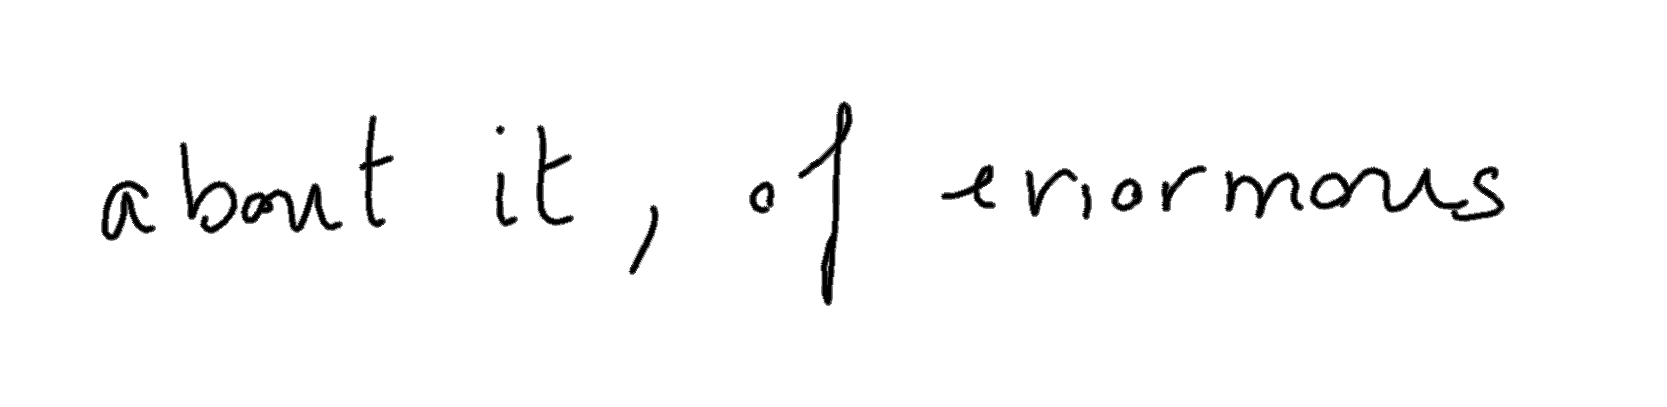 about it, of enormous